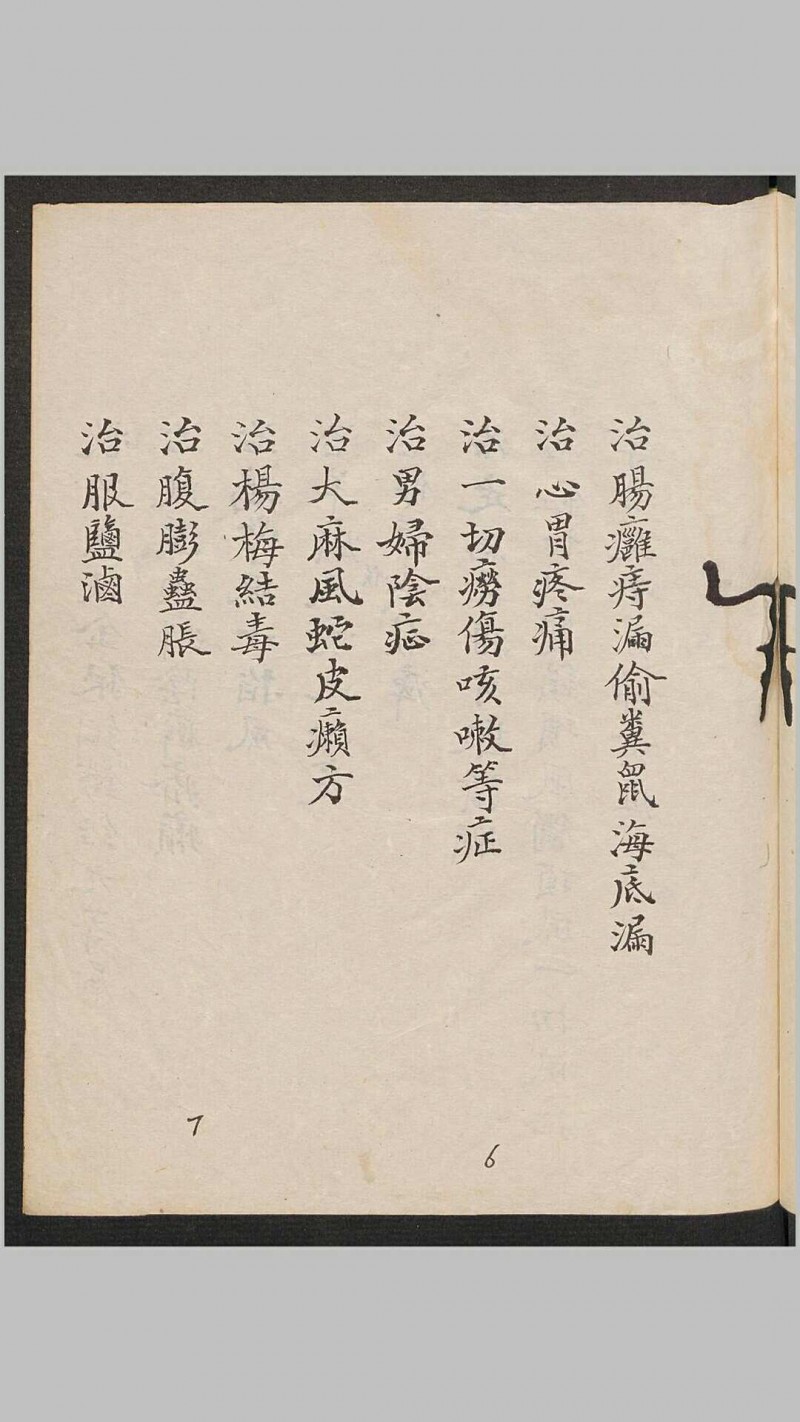 治腸癰痔漏偷糞鼠海底漏
治心胃疼痛
治一切癆傷咳嗽等症
治男婦陰症
治大麻風蛇皮癩方
治楊梅結毒
治腹膨蠱脹
治服鹽滷
7
6